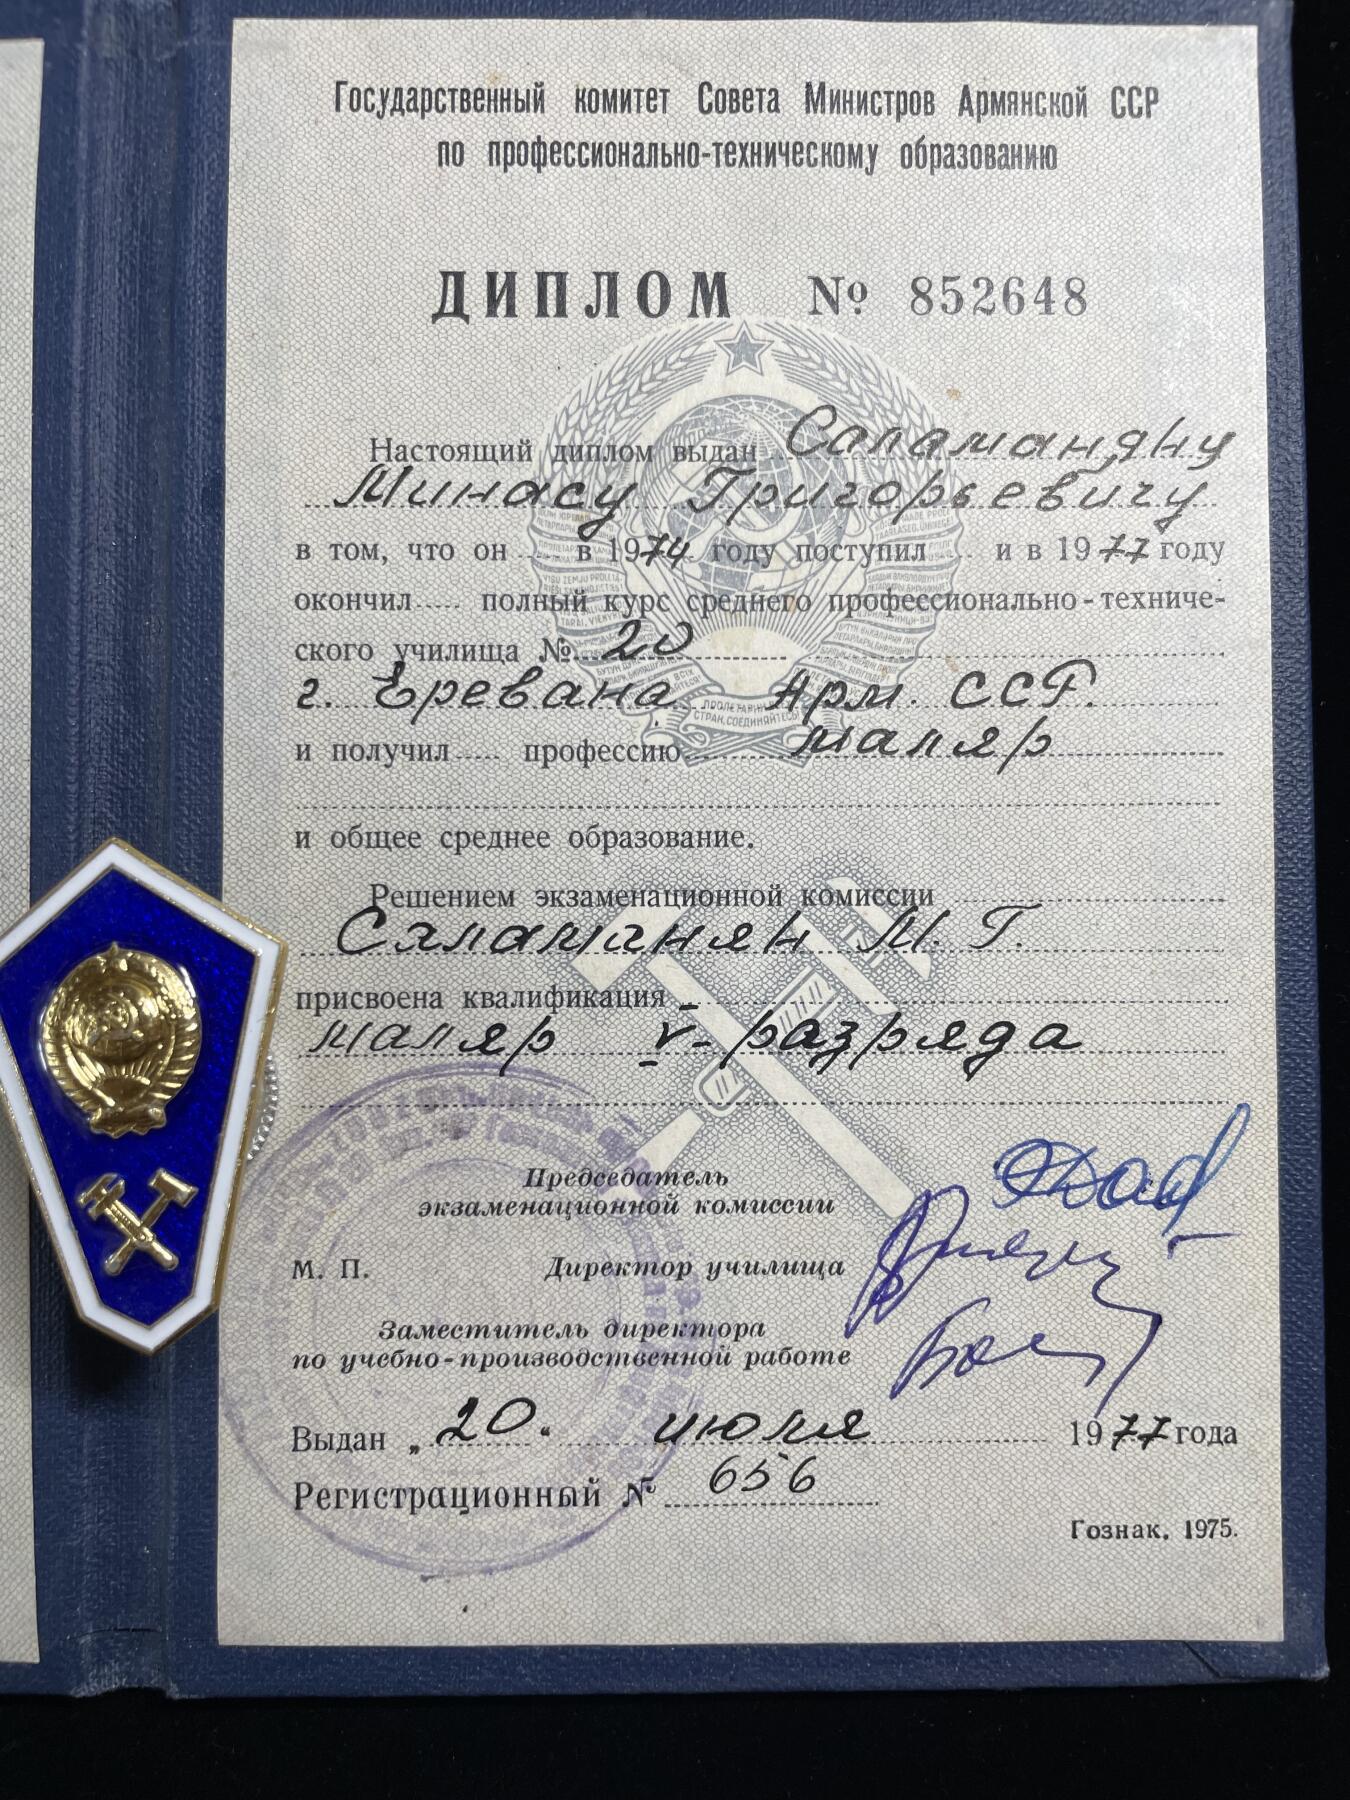 Государственный комитет Совета Министров Армянской ССР
по профессионально-техническому образованию
ДИПЛОМ № 852648
Настоящий диплом выдан Саламаняну
Минасу Григорьевичу
в том, что он в 1974 году поступил и в 1977 году
окончил полный курс среднего профессионально-техниче-
ского училища № 20
г. Еревана Арм. ССР.
и получил профессию маляр
и общее среднее образование.
Решением экзаменационной комиссии
Саламанян М. Г.
присвоена квалификация
маляр V- разряда
Председатель
экзаменационной комиссии
М. П. Директор училища
Заместитель директора
по учебно-производственной работе
Выдан „20“ июля 1977 года
Регистрационный № 656
Гознак. 1975.